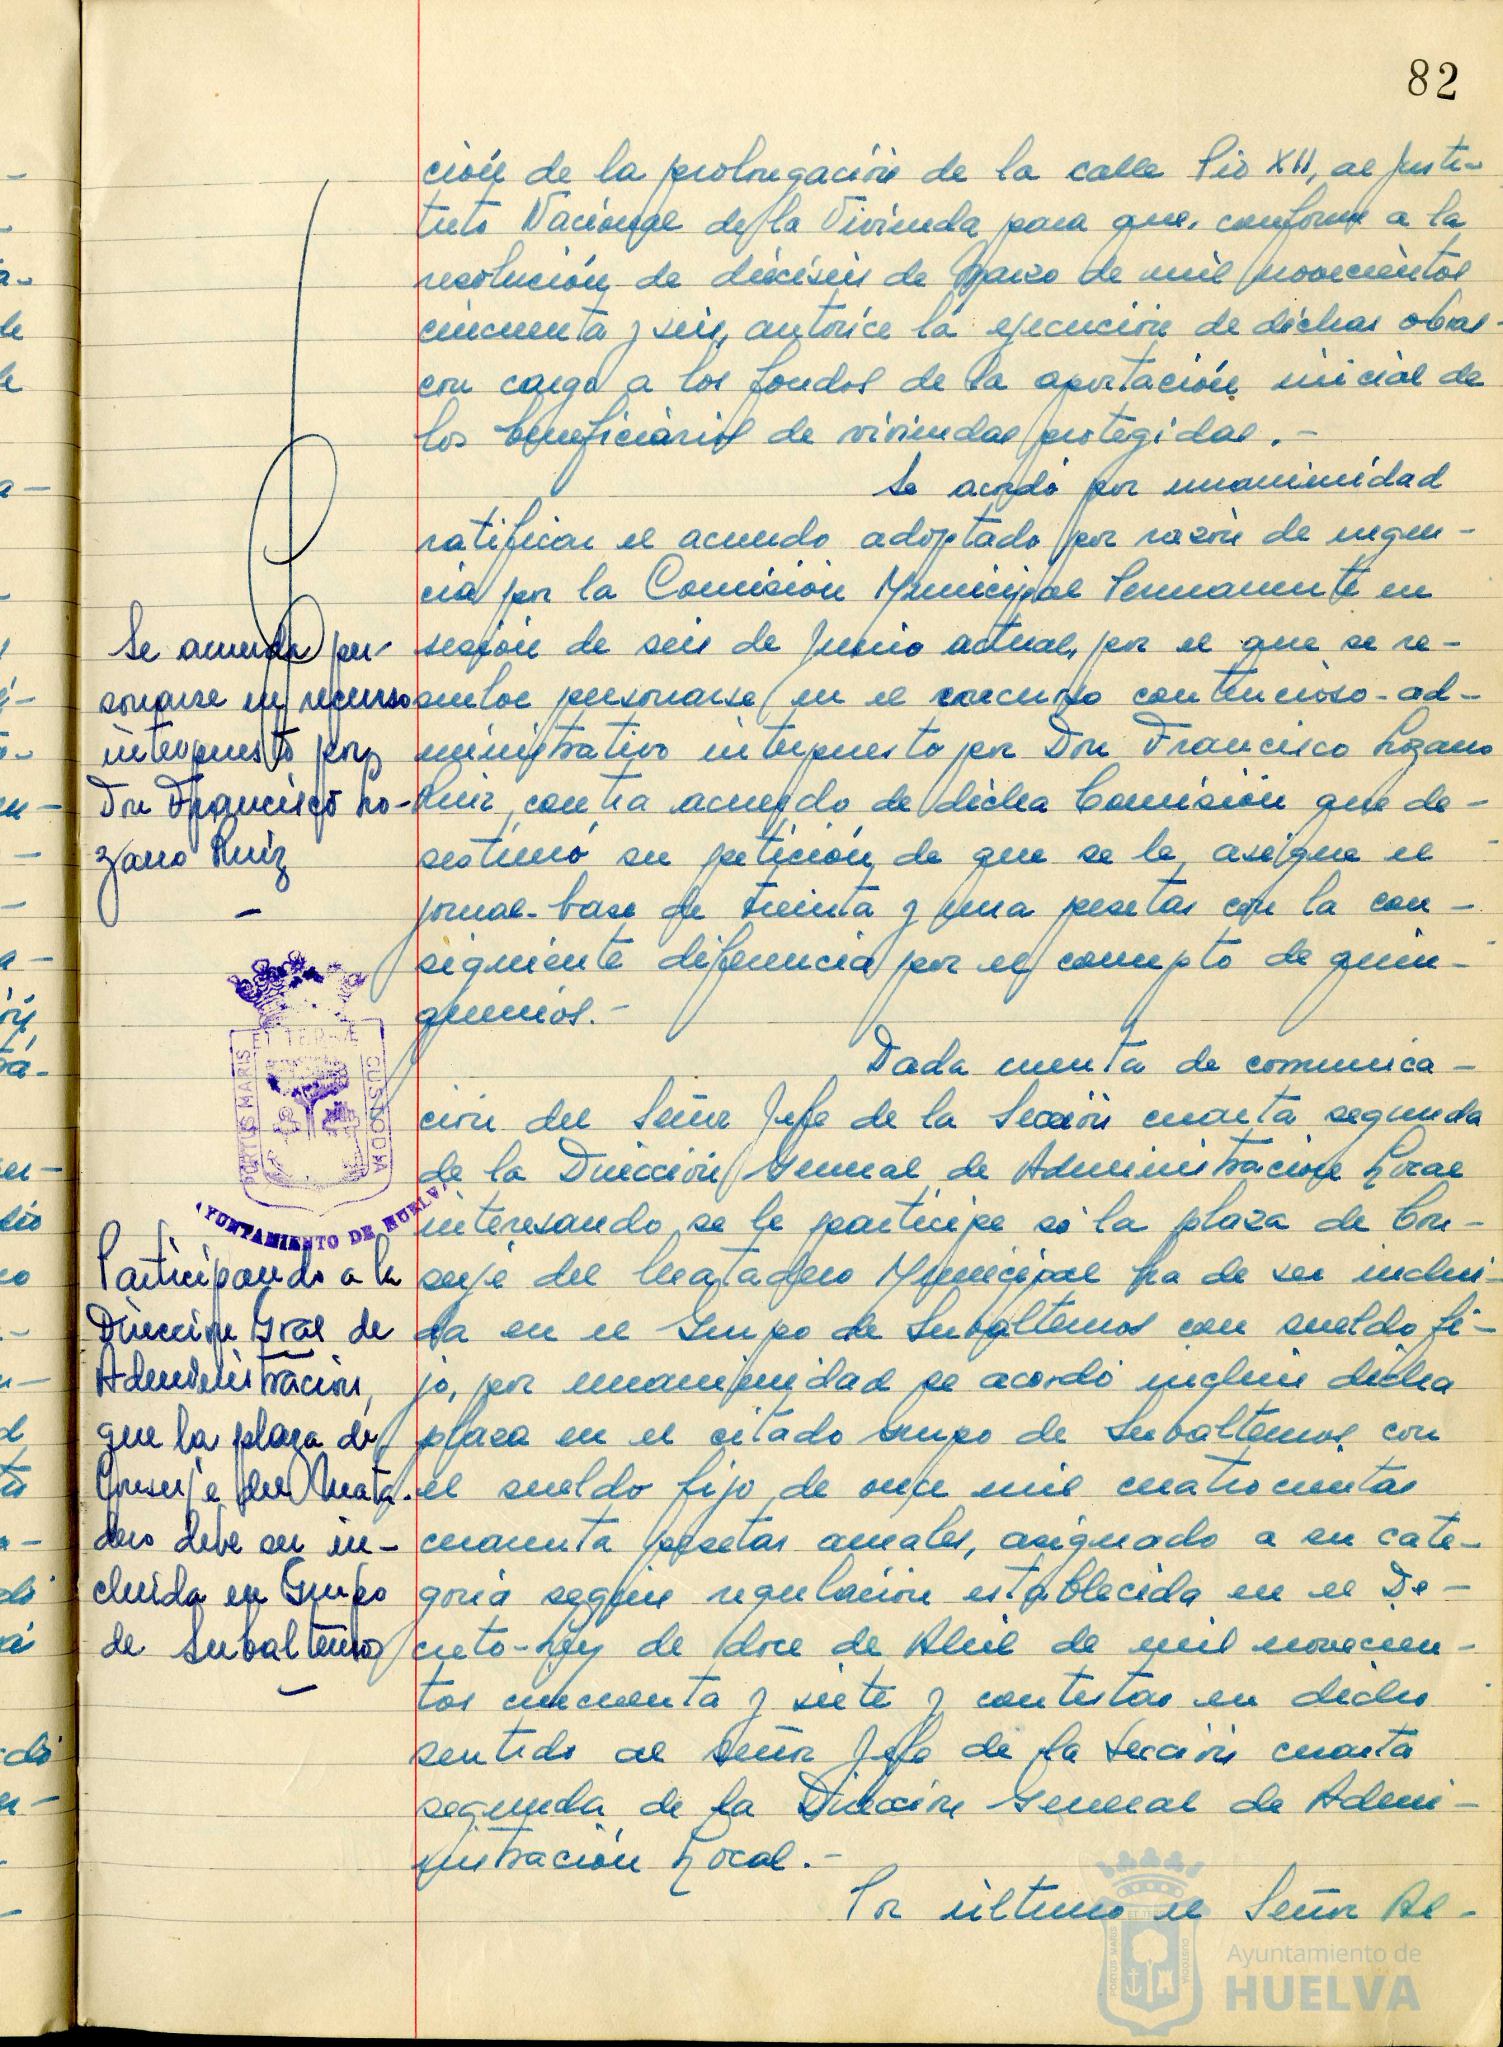 82
ción de la prolongación de la calle Pio XII, al Insti-
tuto Nacional de la Vivienda para que, conforme a la
resolución de dieciseis de Marzo de mil novecientos
cincuenta y seis, autorice la ejecución de dichas obras
con cargo a los fondos de la aportación inicial de
los beneficiarios de viviendas protegidas.-
Se acordó por unanimidad
ratificar el acuerdo adoptado por razón de urgen-
cia por la Comisión Municipal Permanente en
sesión de seis de Junio actual, por el que se re-
suelve personarse en el recurso contencioso-ad-
ministrativo interpuesto por Don Francisco Lozano
Ruiz, contra acuerdo de dicha Comisión que de-
sestimó su petición de que se le asigne el
jornal-base de treinta y una pesetas con la con-
siguiente diferencia por el concepto de quin-
quenios.-
Se acuerda per-
sonarse en recurso
interpuesto por
Don Francisco Lo-
zano Ruiz
-
PORTUS MARIS
ET TERRE
CUSTODIA
AYUNTAMIENTO DE HUELVA
Dada cuenta de comunica-
ción del Señor Jefe de la Sección cuarta segunda
de la Dirección General de Administración Local
interesando se le participe si la plaza de Con-
serje del Matadero Municipal ha de ser inclui-
da en el Grupo de Subalternos con sueldo fi-
jo, por unanimidad se acordó incluir dicha
plaza en el citado Grupo de Subalternos con
el sueldo fijo de once mil cuatrocientas
cuarenta pesetas anuales, asignado a su cate-
goria según regulación establecida en el De-
creto-Ley de doce de Abril de mil novecien-
tos cincuenta y siete y contestar en dicho
sentido al señor Jefe de la Sección cuarta
segunda de la Dirección General de Admi-
nistración Local.-
Participando a la
Dirección Gral de
Administración,
que la plaza de
Conserje del Mata-
dero debe ser in-
cluida en Grupo
de Subalternos
-
Por último el Señor Al-
Ayuntamiento de
HUELVA